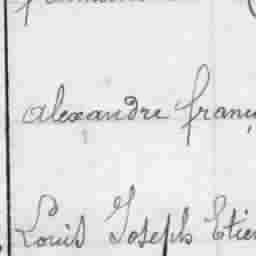 alexandre franç
Louis Joseph Etien